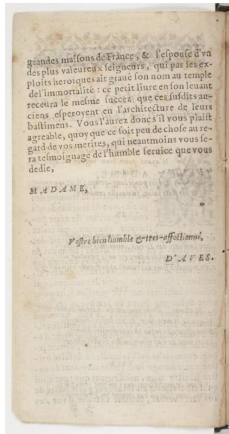 grandes maisons de France, & l'espouse d'vn
des plus valeureux seigneurs, qui par ses ex-
ploits heroiques ait graué son nom au temple
de l'immortalité : ce petit liure en son leuant
receura le mesme succez que ces susdits an-
ciens esperoyent en l'architecture de leurs
bastimens. Vous l'aurez donc s'il vous plaist
agreable, quoy que ce soit peu de chose au re-
gard de vos merites, qui neantmoins vous se-
ra tesmoignage de l'humble seruice que vous
dedie,
MADAME,
Vostre bien humble & tres-affectionné,
D'AVES.